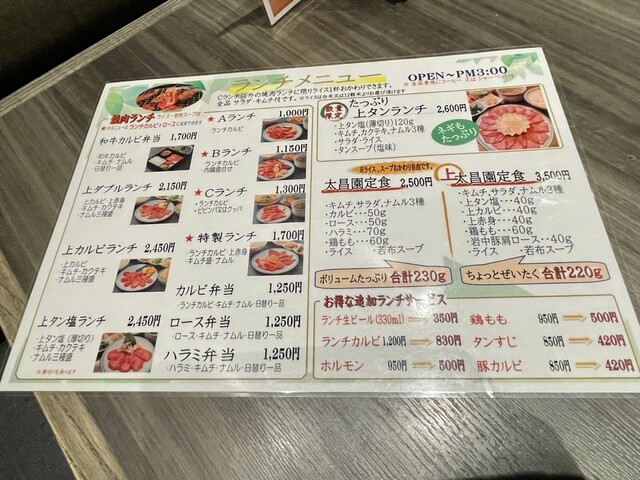 ランチメニュー
OPEN～PM3:00
Cランチ以外の焼肉ランチに限りライス1杯おかわりできます。
全品 サラダ・キムチ付です。
焼肉ランチ
和牛カルビ弁当 1,700円
・和牛カルビ
・キムチ・ナムル
・日替り一品
上ダブルランチ 2,150円
・上カルビ・上赤身
・キムチ・カクテキ
・ナムル三種盛
上カルビランチ 2,450円
・上カルビ
・キムチ・カクテキ
・ナムル三種盛
上タン塩ランチ 2,450円
・上タン塩(厚切り)
・キムチ・カクテキ
・ナムル三種盛
★ Aランチ 1,000円
・ランチカルビ
★ Bランチ 1,150円
・ランチカルビ
・内臓盛合せ
★ Cランチ 1,300円
・ランチカルビ
・ビビンバ又はクッパ
★ 特製ランチ 1,700円
・ランチカルビ・上赤身
・キムチ盛・ナムル
カルビ弁当 1,250円
・ランチカルビ・キムチ・ナムル・日替り一品
ロース弁当 1,250円
・ロース・キムチ・ナムル・日替り一品
ハラミ弁当 1,250円
・ハラミ・キムチ・ナムル・日替り一品
数量限定
たっぷり
上タンランチ 2,600円
・上タン塩(薄切り)120g
・キムチ,カクテキ,ナムル3種
・サラダ・ライス
・タンスープ(塩味)
ネギも
たっぷり
ライス,スープおかわり自由です。
太昌園定食 2,500円
・キムチ,サラダ,ナムル3種
・カルビ・・・50g
・ロース・・・50g
・ハラミ・・・70g
・鶏もも・・・60g
・ライス ・若布スープ
ボリュームたっぷり 合計230g
上太昌園定食 3,500円
・キムチ,サラダ,ナムル3種
・上タン塩・・・40g
・上カルビ・・・40g
・上赤身・・・40g
・鶏もも・・・60g
・岩中豚肩ロース・・40g
・ライス ・若布スープ
ちょっとぜいたく 合計220g
お得な追加ランチサービス
ランチ生ビール(330ml) 350円
ランチカルビ 1,200円 830円
ホルモン 950円 500円
鶏もも 950円 500円
タンすじ 850円 420円
豚カルビ 850円 420円